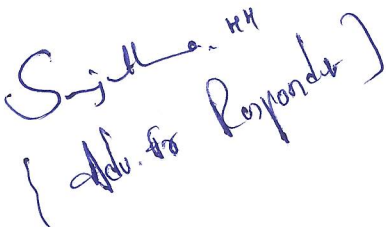 Sujatha. HM
(Adv. for Respondent)